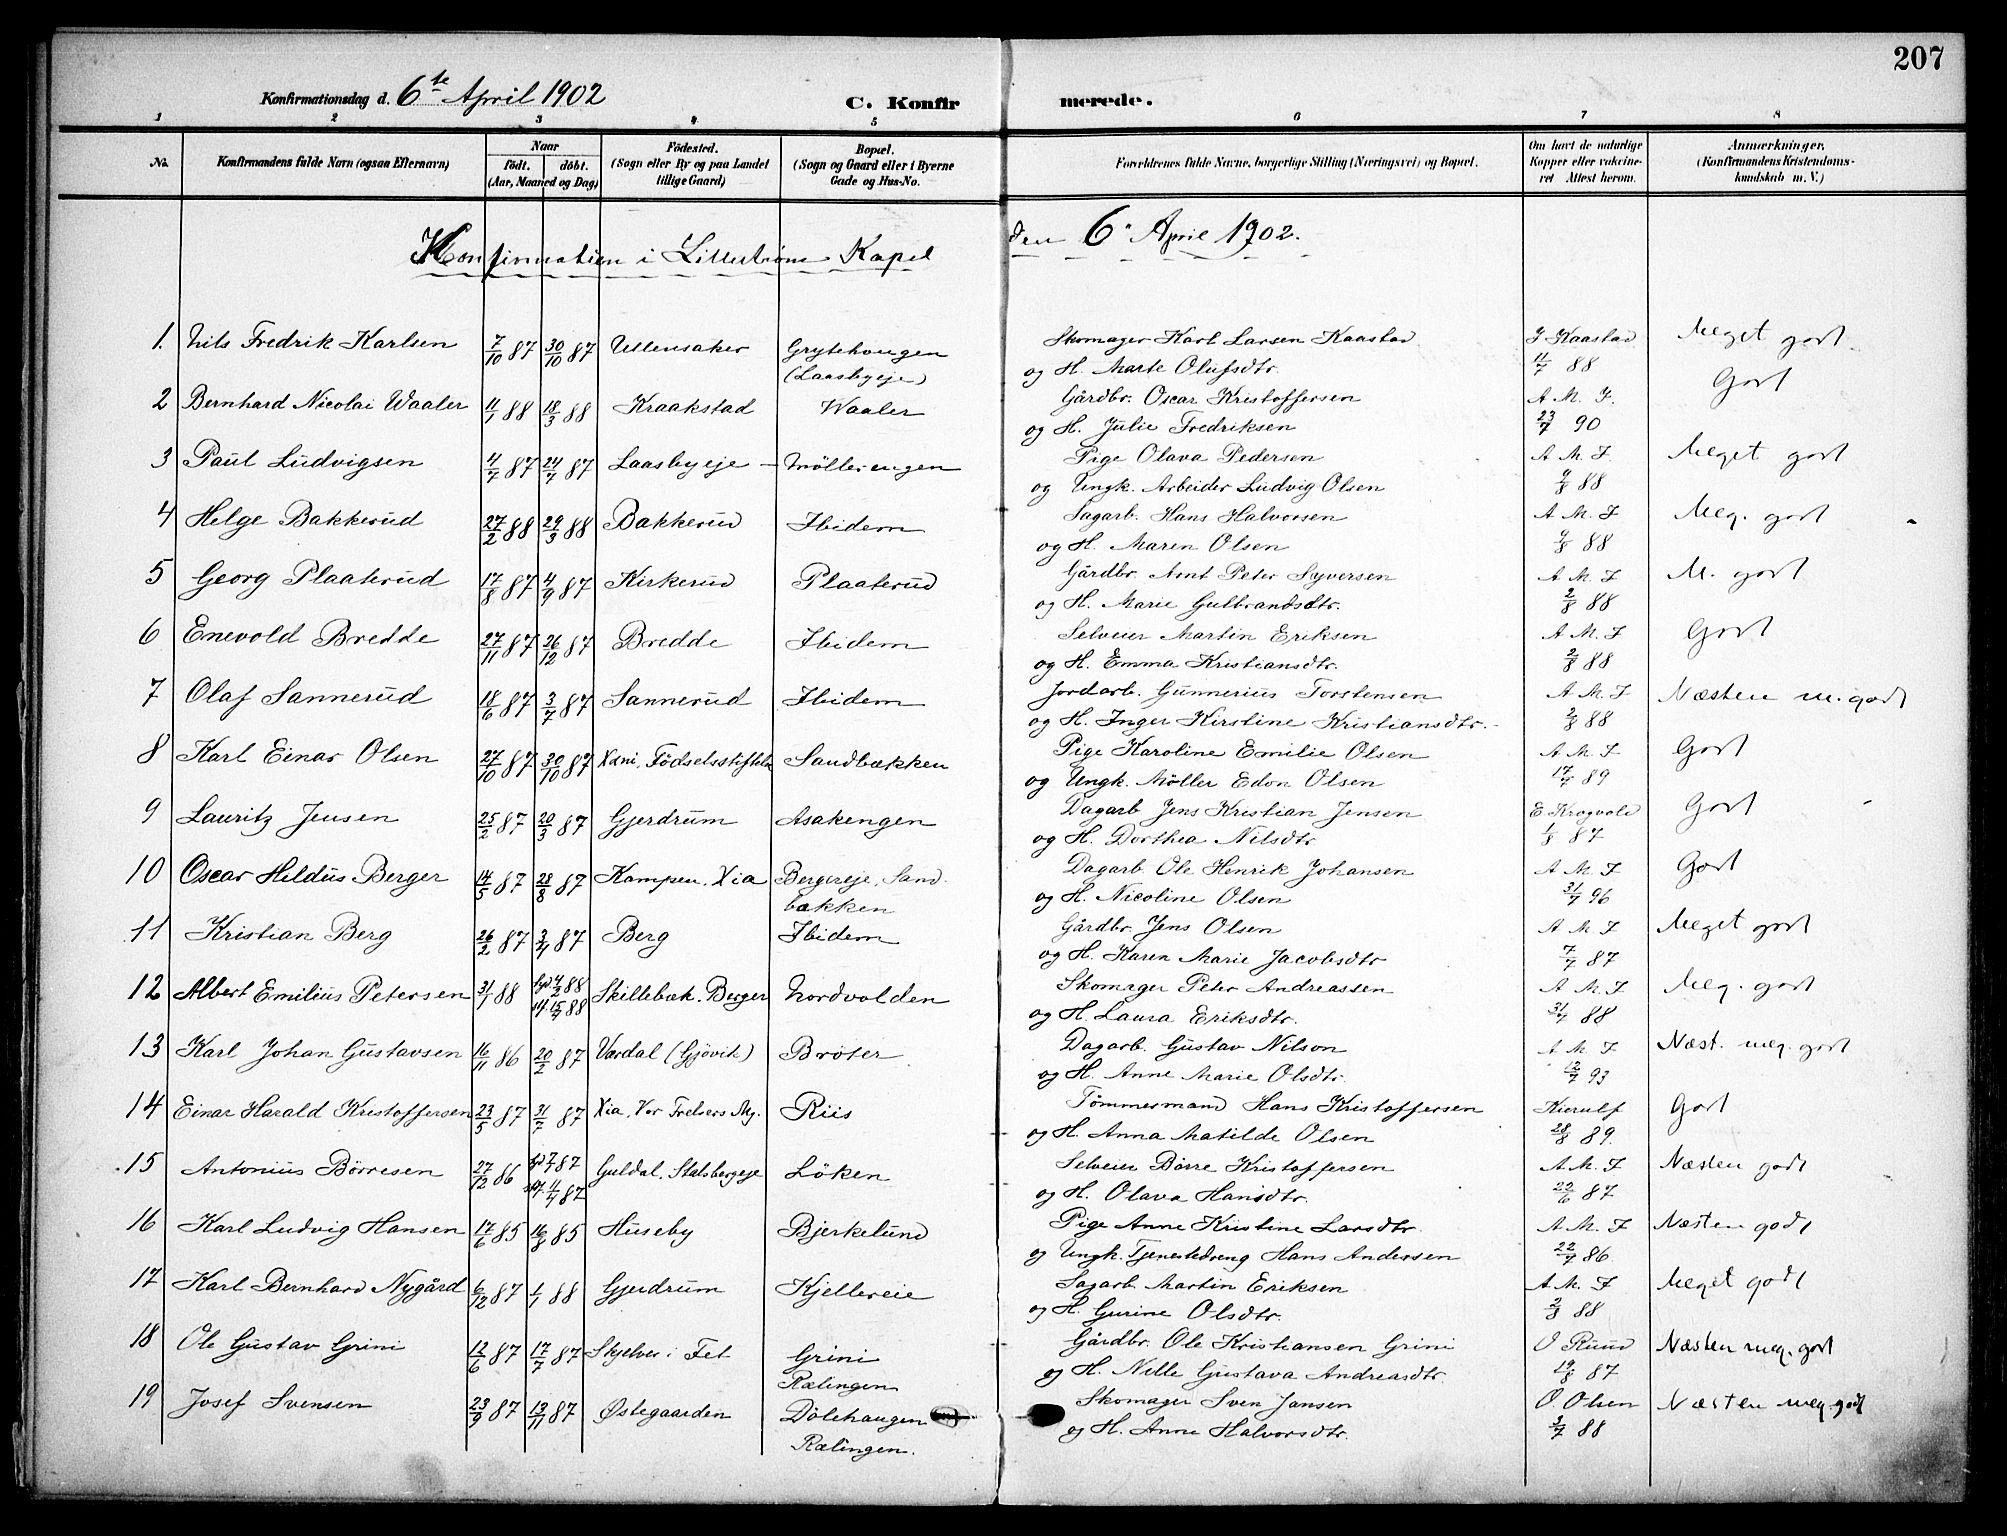 207
Konfirmationsdag d. 6te April 1902
C. Konfirmerede.
1 2 3 4 5 6 7 8
No. Konfirmandens fulde Navn (ogsaa Efternavn) Naar født. døbt. (Aar, Maaned og Dag) Fødested. (Sogn eller By og paa Landet tillige Gaard) Bopæl. (Sogn og Gaard eller i Byerne Gade og Hus-No. Forældrenes fulde Navne, borgerlige Stilling (Næringsvei) og Bopæl. Om havt de naturlige Kopper eller vaccineret Attest herom. Anmærkninger. (Konfirmandens Kristendomskundskab m. V.)
Konfirmation i Lillestrøms Kapel den 6. April 1902.
1. Nils Fredrik Karlsen 7/10 87 30/10 87 Ullensaker Grytehougen (Laasbyeje) Skomager Karl Larsen Kaastad J Kaastad Meget godt
og H. Marte Olufsdtr. 11/7 88
2 Bernhard Nicolai Waaler 11/1 88 18/3 88 Kraakstad Waaler Gårdbr. Oscar Kristoffersen A. M. J. Godt
og H. Julie Fredriksen 23/7 90
3 Paul Ludvigsen 4/7 87 24/7 87 Laasbyeje - Møllerengen Pige Olava Pedersen A M. J Meget godt
og Ungk. Arbeider Ludvig Olsen 9/8 88
4 Helge Bakkerud 27/2 88 29/3 88 Bakkerud Ibidem Sagarb. Hans Halvorsen A M. J Meg. godt
og H. Maren Olsen 9/8 88
5 Georg Plaaterud 17/8 87 4/9 87 Kirkerud Plaaterud Gårdbr. Arnt Peter Syversen A M. J M. godt
og H. Marie Gulbrandsdtr. 2/8 88
6 Enevold Bredde 27/11 87 26/12 87 Bredde Ibidem Selveier Martin Eriksen A M. J Godt
og H. Emma Kristiansdtr. 2/8 88
7 Olaf Sannerud 18/6 87 3/7 87 Sannerud Ibidem Jordarb. Gunnerius Torstensen A M. J Næsten m. godt
og H. Inger Kirstine Kristiansdtr. 2/8 88
8 Karl Einar Olsen 27/10 87 30/10 87 Xani, Fødselsstiftelse Sandbækken Pige Karoline Emilie Olsen A M. J Godt
og Ungk. Møller Edon Olsen 17/7 89
9 Lauritz Jensen 25/2 87 20/3 87 Gjerdrum Asakengen Dagarb Jens Kristian Jensen E Krogvold Godt
og H. Dorthea Nilsdtr. 1/8 87
10 Oscar Hildus Berger 14/5 87 28/8 87 Kampen. Xia Bergereje, Sandbækken Dagarb Ole Henrik Johansen A M. J Godt
og H. Nicoline Olsen 31/7 96
11 Kristian Berg 26/2 87 3/4 87 Berg Ibidem Gårdbr. Jens Olsen A M. J Meget godt
og H. Karen Marie Jacobsdtr 7/7 87
12 Albert Emilius Petersen 31/1 88 4/2 88 15/4 88 Skillebæk. Berger Nordvolden Skomager Peter Andreassen A M. J Meg. godt
og H. Laura Eriksdtr. 31/7 88
13 Karl Johan Gustavsen 16/11 86 20/2 87 Vardal (Gjövik) Brøter Dagarb. Gustav Nilson A M. J Næst. meg. godt
og H. Anne Marie Olsdtr. 12/7 93
14 Einar Harald Kristoffersen 23/5 87 31/7 87 Xia, Vor Frelsers Mg. Riis Tömmermand Hans Kristoffersen Kierulf Godt
og H. Anna Matilde Olsen 28/8 89.
15 Antonius Börresen 27/12 86 87 11/4 87 Guldal. Stalsbergeje Löken Selveier Börre Kristoffersen A. M. J Næsten godt
og H. Olava Hansdtr. 22/6 87
16 Karl Ludvig Hansen 17/6 85 16/8 85 Huseby Bjerkelund Pige Anne Kristine Larsdtr A M. J Næsten godt
og Ungk. Tjenestedreng Hans Andersen 22/7 86
17 Karl Bernhard Nygård 6/12 87 1/1 88 Gjerdrum Kjellereie Sagarb Martin Eriksen A. M. J Meget godt
og H. Gurine Olsdtr. 2/8 88
18 Ole Gustav Grini 12/6 87 17/7 87 Skjelver i Fet Grini Rælingen Gårdbr. Ole Kristiansen Grini O Ruud Næsten meg. godt
og H. Nille Gustava Andreasdtr. 19/8 87
19 Josef Svensen 23/9 87 13/11 87 Østegaarden Dölehaugen Rælingen. Skomager Sven Jansen O. Olsen Næsten meg. godt
og H. Anne Halvorsdtr. 3/7 88